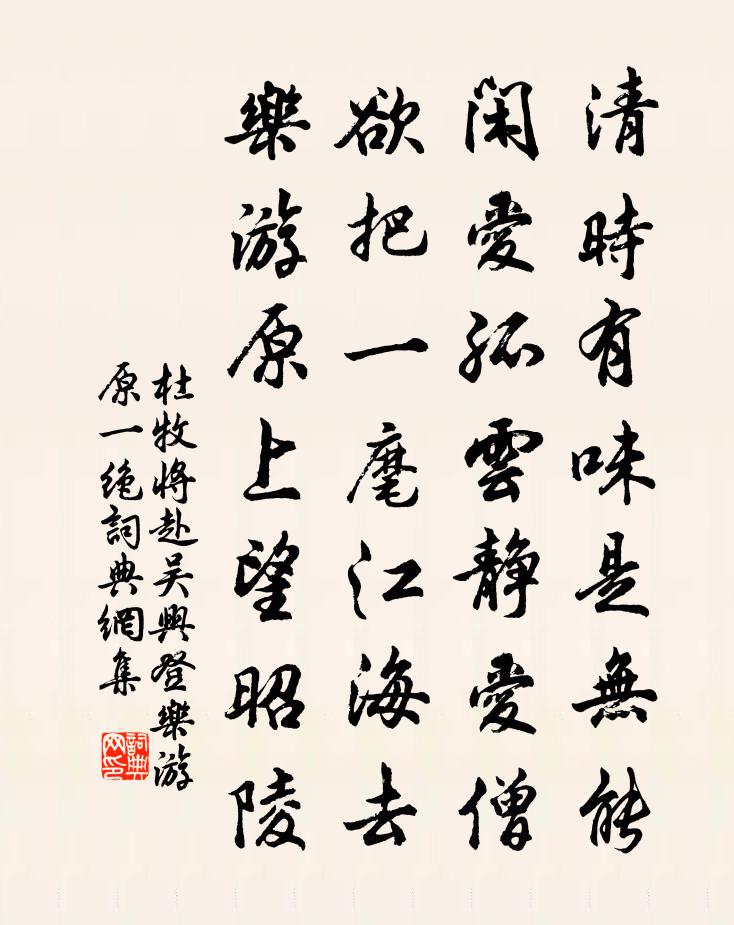 清時有味是無能
閑愛孤雲靜愛僧
欲把一麾江海去
樂游原上望昭陵
杜牧將赴吴興登樂游
原一絶詞典網集
詞典网印